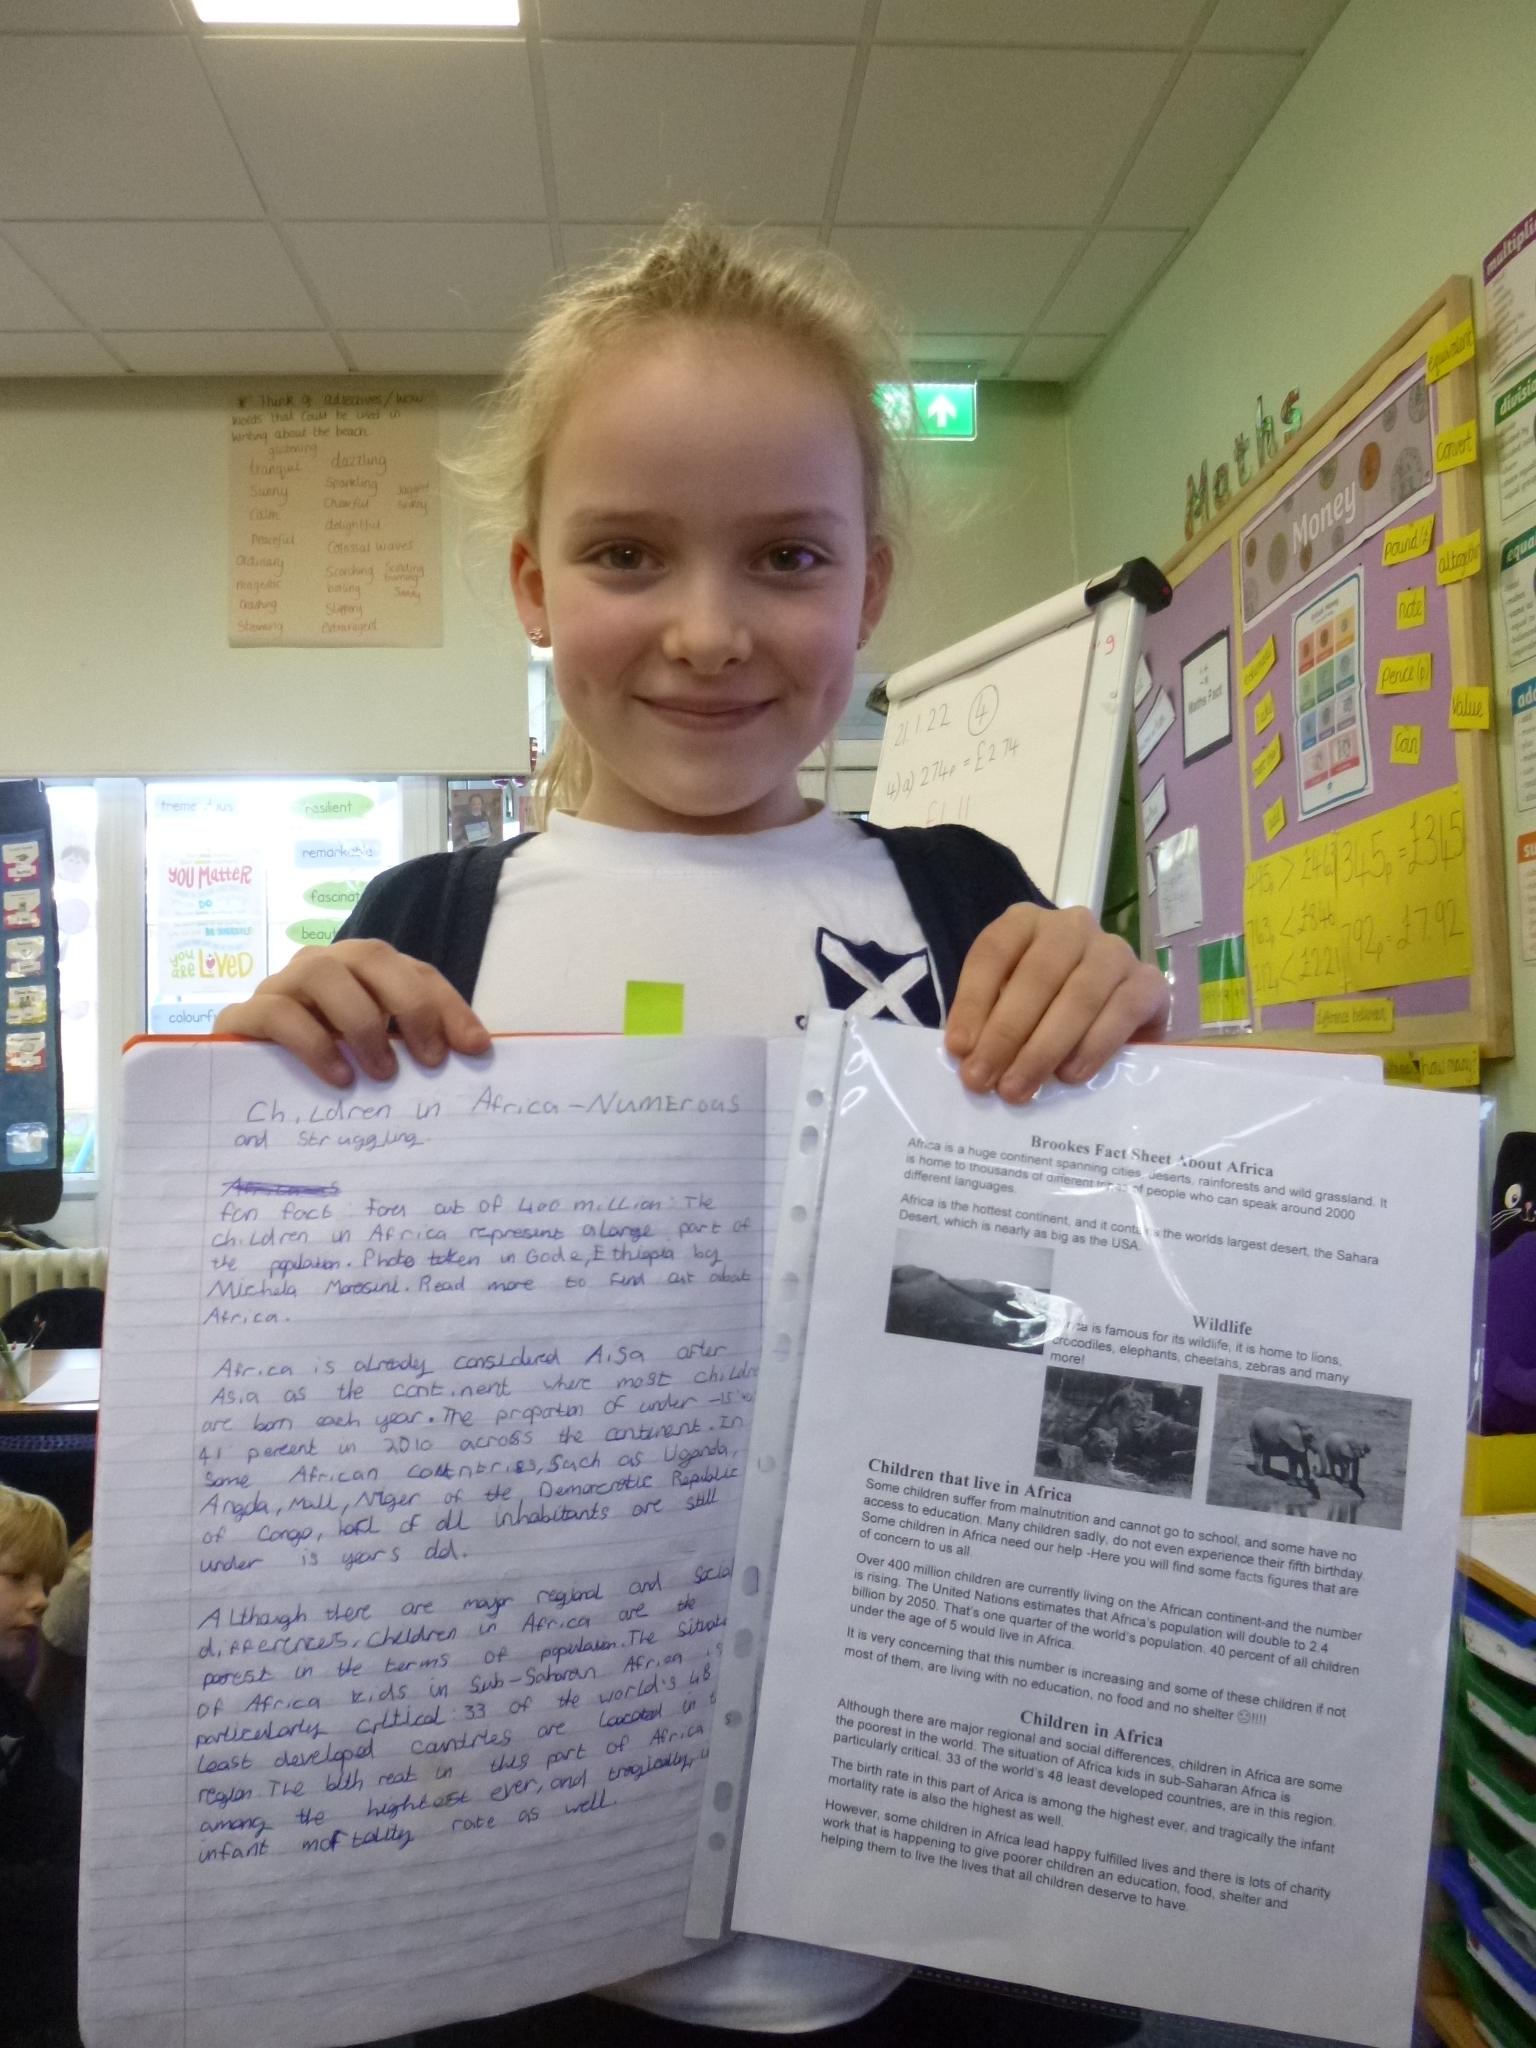 * Think of adjectives/wow
words that could be used in
writing about the beach.
glistening
tranquil dazzling
Sunny Sparkling
Calm Cheerful
Peaceful delightful
Ordinary Colossal waves
Scorching
boiling
Crashing Slippery
Steaming
resilient
remarkable
YOU MATTER
DO
you are LOVED
Maths
Money
equivalent
convert
pound(£)
altogether
note
pence(p)
value
coin
Maths Fact
21.1.22 4
4)a) 274p = £2.74
345p = £3.45
792p = £7.92
difference between
how many?
Children in Africa - Numerous
and Struggling.
fun fact : Fores out of 400 million : The
children in Africa represent a large part of
the population. Photo taken in Gode, Ethiopia by
Michela Morosini. Read more to find out about
Africa.
Africa is already considered Aisa after
Asia as the continent where most children
are born each year. The proportion of under -15
41 percent in 2010 across the continent. In
Some African countries, such as Uganda,
Angola, Mali, Niger of the Democratic Republic
of Congo, half of all inhabitants are still
under is years old.
Although there are major regional and Social
differences, Children in Africa are the
poorest in the terms of population. The situation
of Africa kids in Sub-Saharan Africa is
particularly critical : 33 of the world's 48
Least developed countries are Located in
region The bith reat in this part of Africa
among the hightest ever, and tragically,
infant mortality rate as well.
Brookes Fact Sheet About Africa
Africa is a huge continent spanning cities, deserts, rainforests and wild grassland. It
is home to thousands of different tribes of people who can speak around 2000
different languages.
Africa is the hottest continent, and it contains the worlds largest desert, the Sahara
Desert, which is nearly as big as the USA.
Wildlife
Africa is famous for its wildlife, it is home to lions,
crocodiles, elephants, cheetahs, zebras and many
more!
Children that live in Africa
Some children suffer from malnutrition and cannot go to school, and some have no
access to education. Many children sadly, do not even experience their fifth birthday.
Some children in Africa need our help -Here you will find some facts figures that are
of concern to us all.
Over 400 million children are currently living on the African continent-and the number
is rising. The United Nations estimates that Africa's population will double to 2.4
billion by 2050. That's one quarter of the world's population. 40 percent of all children
under the age of 5 would live in Africa.
It is very concerning that this number is increasing and some of these children if not
most of them, are living with no education, no food and no shelter ☹!!!!
Children in Africa
Although there are major regional and social differences, children in Africa are some
the poorest in the world. The situation of Africa kids in sub-Saharan Africa is
particularly critical. 33 of the world's 48 least developed countries, are in this region.
The birth rate in this part of Arica is among the highest ever, and tragically the infant
mortality rate is also the highest as well.
However, some children in Africa lead happy fulfilled lives and there is lots of charity
work that is happening to give poorer children an education, food, shelter and
helping them to live the lives that all children deserve to have.